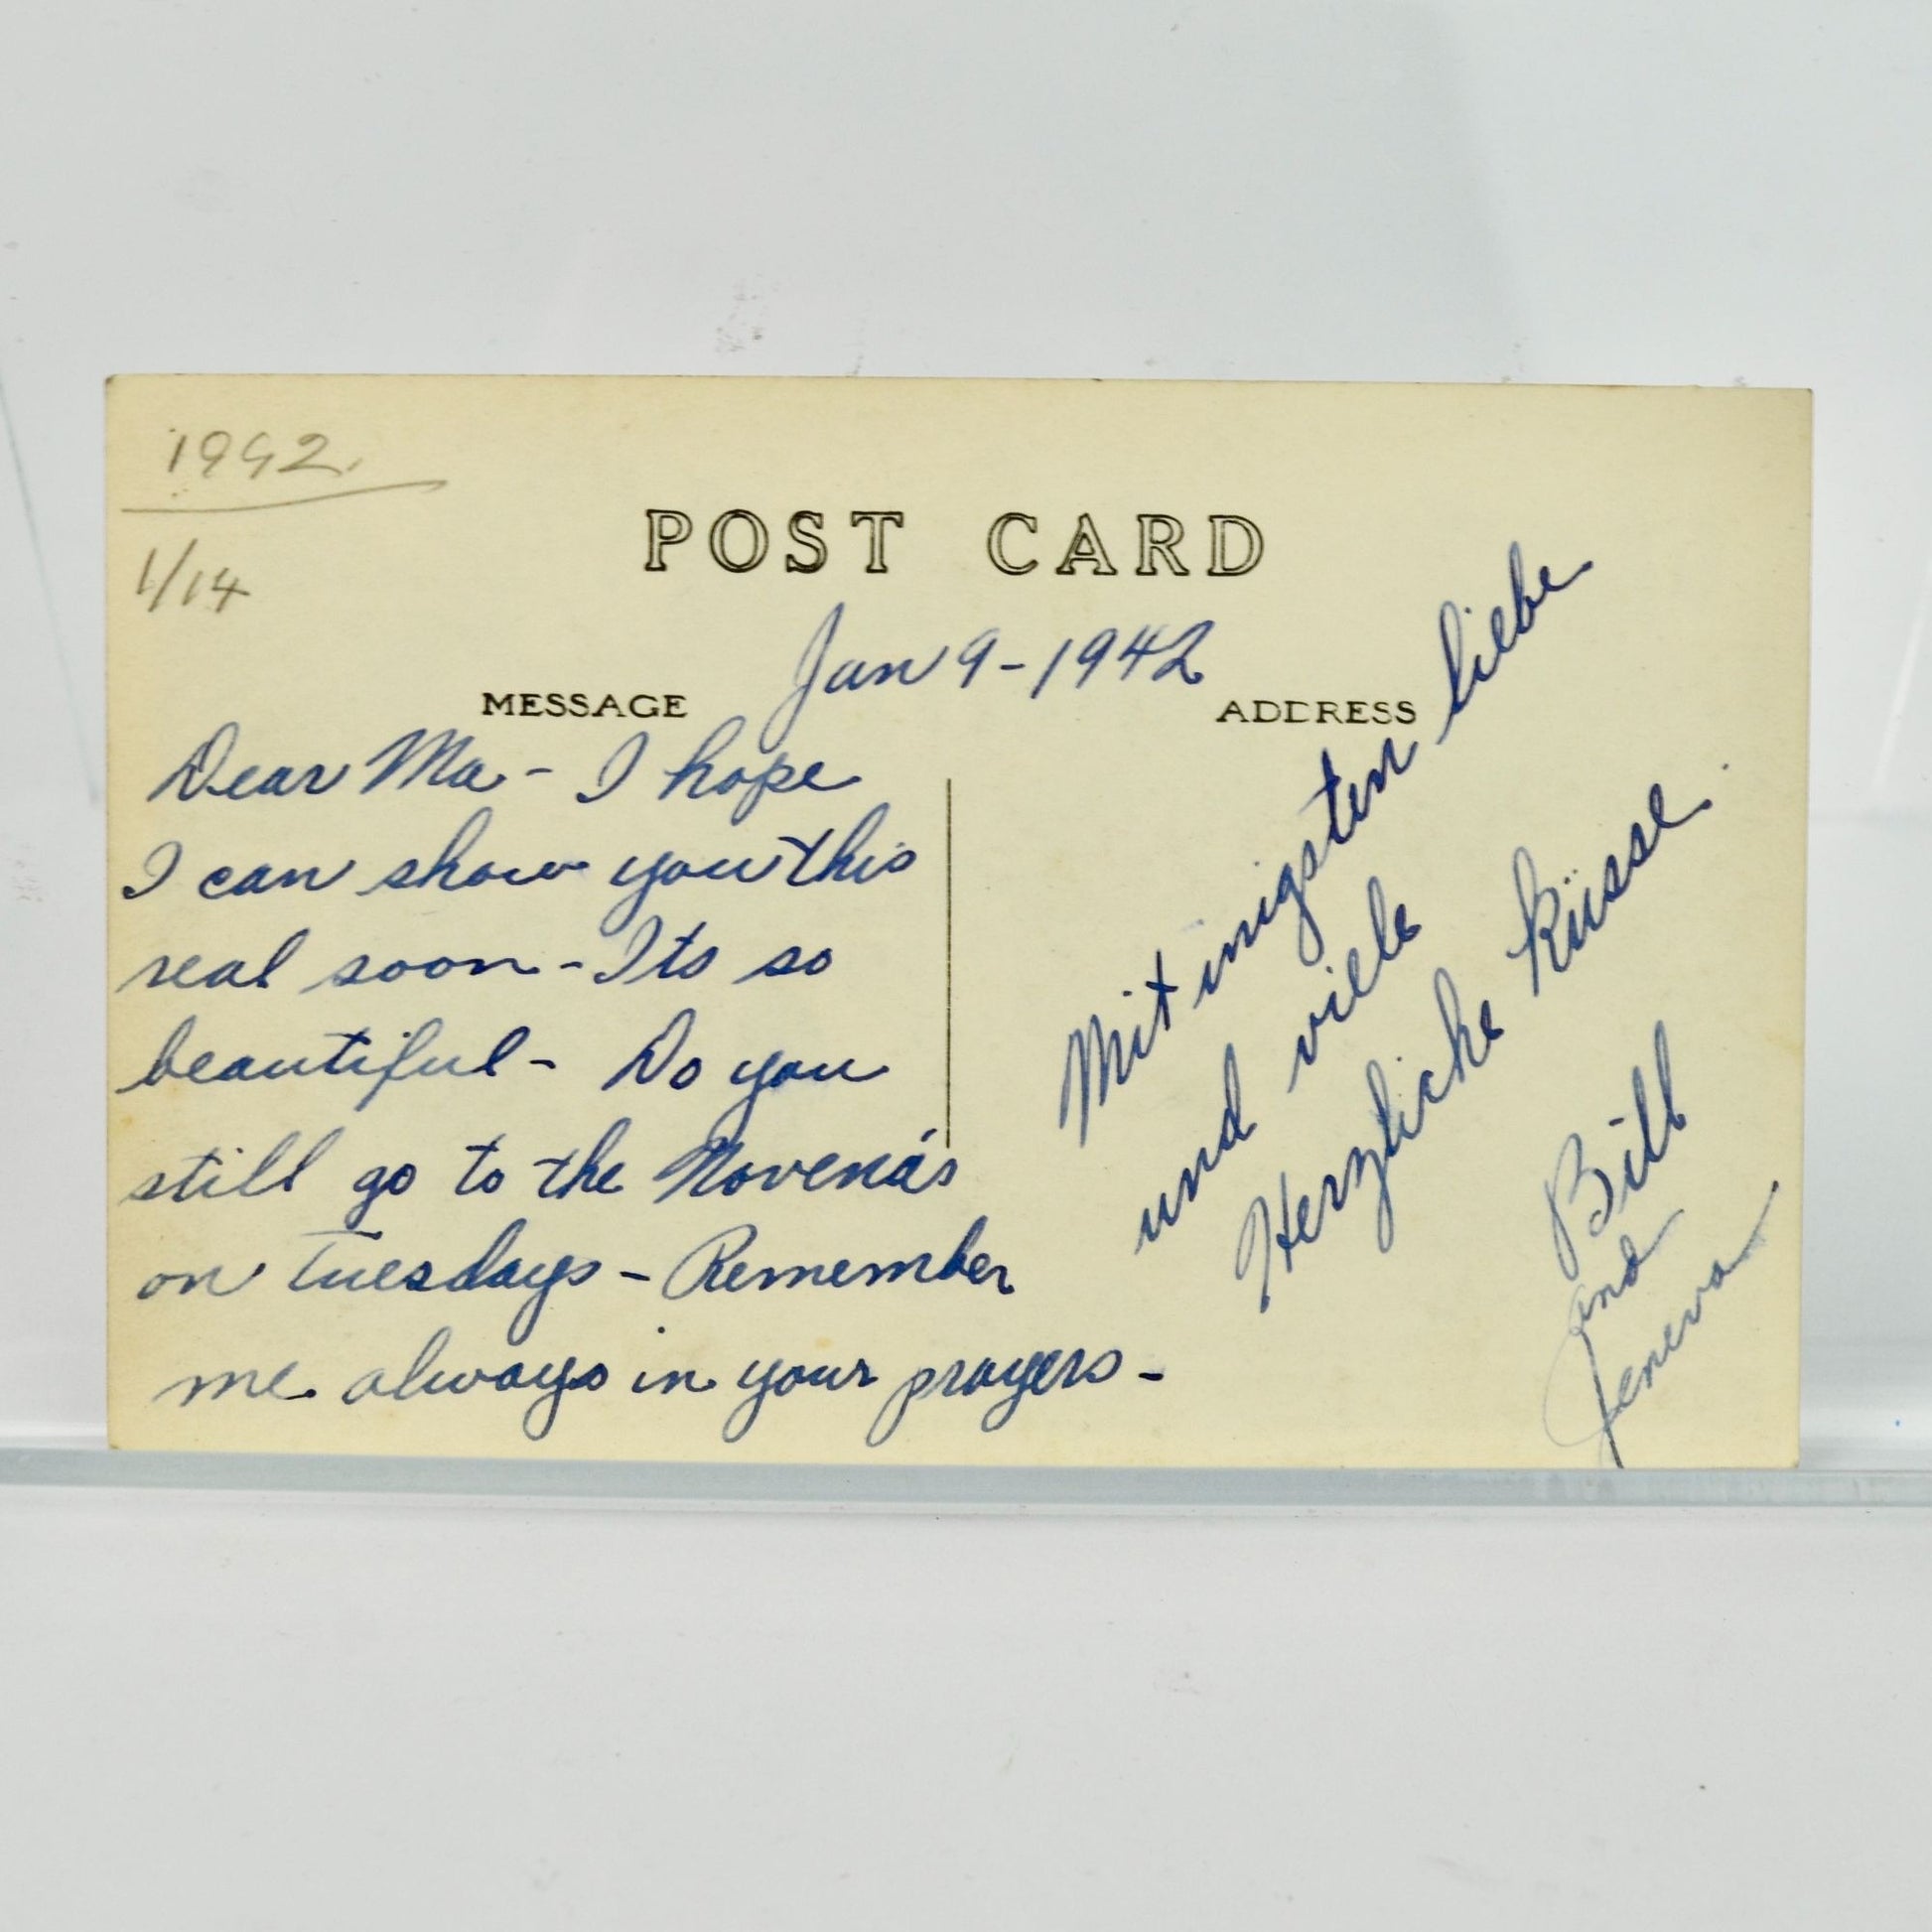 1942.
1/14
POST CARD
Jan 9-1942
MESSAGE
Dear Ma - I hope
I can show you this
real soon - Its so
beautiful - Do you
still go to the Novena's
on Tuesdays - Remember
me always in your prayers -
ADDRESS
Mit inigsten liebe
und viele
Herzliche Küsse.
Bill
and
Jeneva